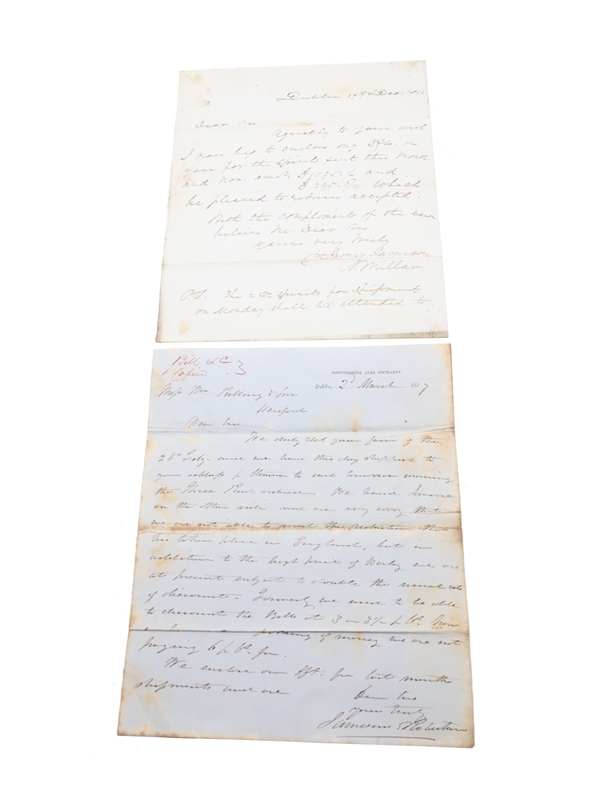 Dublin 29th Dec
Dear Sir
Agreeably to your wish
I now beg to enclose my Dfts. on
you for the spirit sent this month
and Nov. amot. £ and
£ which
be pleased to return accepted.
With the compliments of the
believe me Dear Sir
Yours very truly
James Jameson
A. Millar
P.S. The 2 Cs. Spirits for Shipment
on Monday shall be attended to
Bill &c
Copied
MARROWBONE LANE DISTILLERY,
DUBLIN 2d March 1857
Mess Wm Pulling & Son
Hereford
Dear Sirs
We only recd your favor of the
26 Feby. and we have this day shipped to
your address to sail tomorrow morning
the Three Puns ordered. We hand Invoice
on the other side and are very sorry that
we are not able to the reduction that
has taken place in England, but in
addition to the high price of Barley we are
at present subject to double the usual rate
of discounts. Formerly we used to be able
to discount the Bills at 3 or 3½ p Ct.
of money we are not
paying 6 p Ct. for.
We enclose our Dft. for last months
shipments and are
Dear Sirs
yours truly
Jameson & Robertson